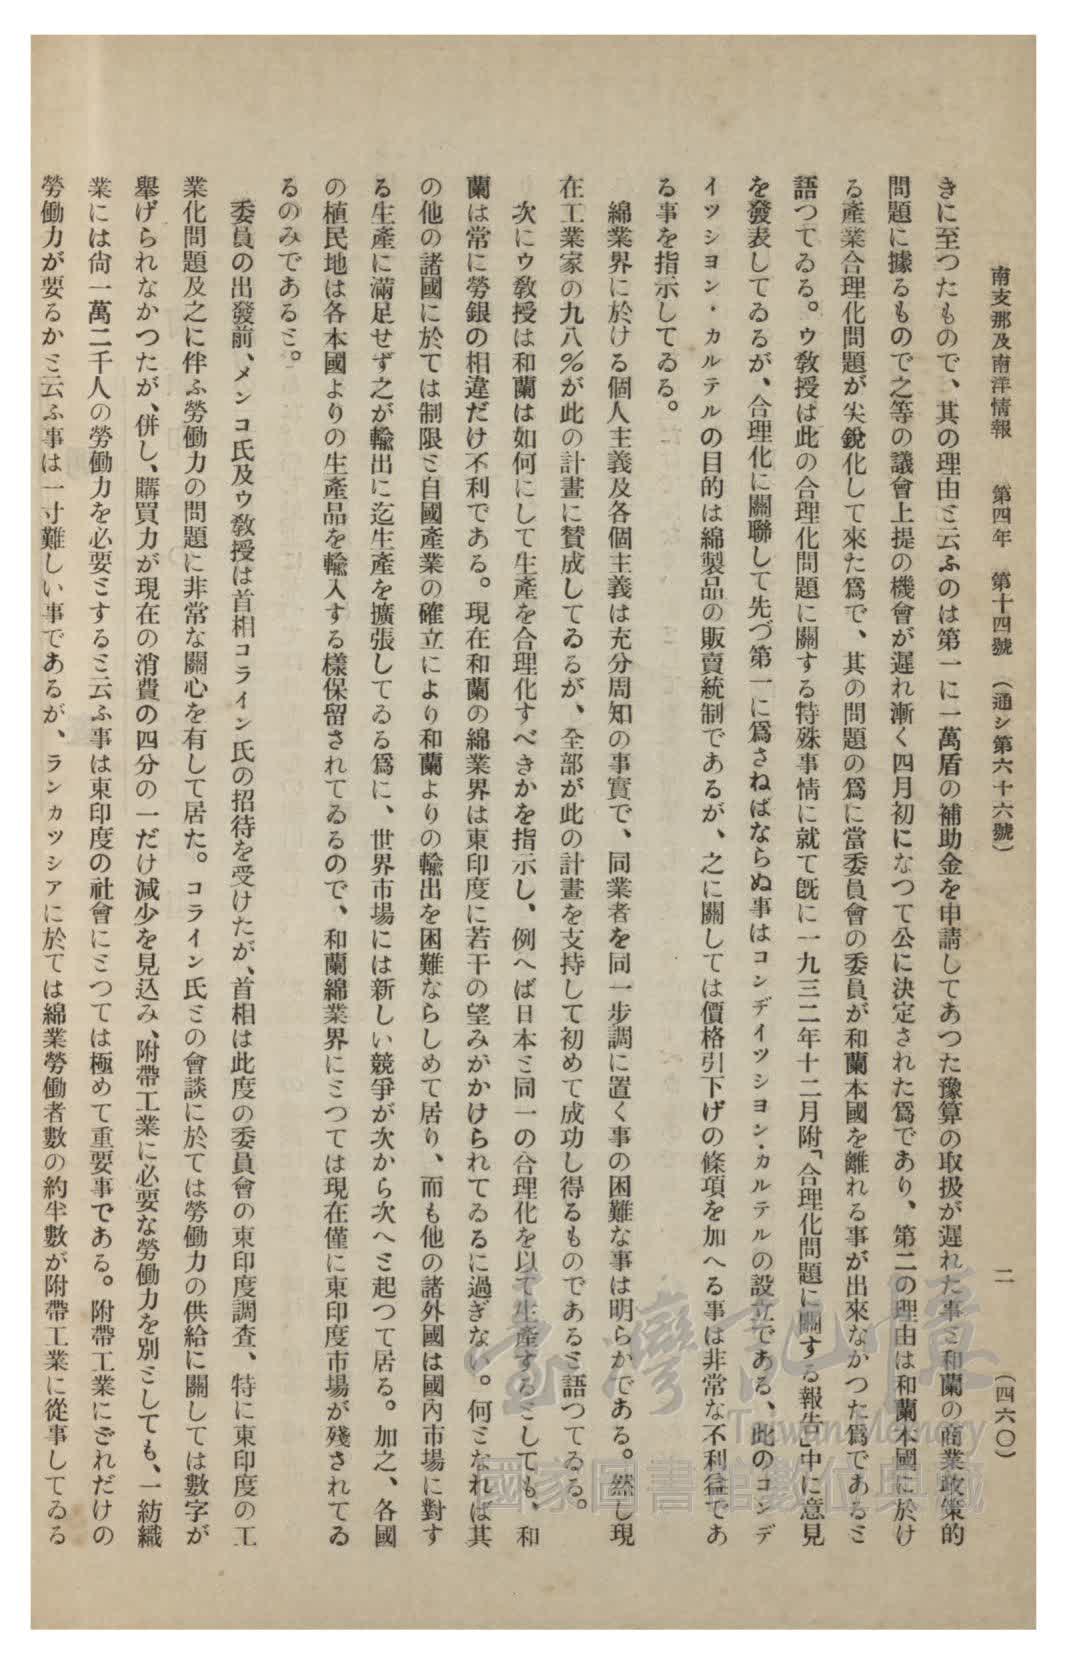 南支那及南洋情報　第四年　第十四號　(通シ第六十六號)　二　(四六〇)
きに至つたもので、其の理由ミ云ふのは第一に一萬盾の補助金を申請してあつた豫算の取扱が遲れた事ミ和蘭の商業政策的
問題に據るもので之等の議會上提の機會が遲れ漸く四月初になつて公に決定された爲であり、第二の理由は和蘭本國に於け
る產業合理化問題が尖銳化して來た爲で、其の問題の爲に當委員會の委員が和蘭本國を離れる事が出來なかつた爲であるミ
語つてゐる。ウ敎授は此の合理化問題に關する特殊事情に就て旣に一九三二年十二月附「合理化問題に關する報告」中に意見
を發表してゐるが、合理化に關聯して先づ第一に爲さねばならぬ事はコンデイツシヨン・カルテルの設立である、此のコンデ
イツシヨン・カルテルの目的は綿製品の販賣統制であるが、之に關しては價格引下げの條項を加へる事は非常な不利益であ
る事を指示してゐる。
綿業界に於ける個人主義及各個主義は充分周知の事實で、同業者を同一步調に置く事の困難な事は明らかである。然し現
在工業家の九八％が此の計畫に贊成してゐるが、全部が此の計畫を支持して初めて成功し得るものであるミ語つてゐる。
次にウ敎授は和蘭は如何にして生產を合理化すべきかを指示し、例へば日本ミ同一の合理化を以て生產するミしても、和
蘭は常に勞銀の相違だけ不利である。現在和蘭の綿業界は東印度に若干の望みかかけられてゐるに過ぎない。何ミなれば其
の他の諸國に於ては制限ミ自國產業の確立により和蘭よりの輸出を困難ならしめて居り、而も他の諸外國は國內市場に對す
る生產に滿足せず之が輸出に迄生產を擴張してゐる爲に、世界市場には新しい競爭が次から次へミ起つて居る。加之、各國
の植民地は各本國よりの生產品を輸入する樣保留されてゐるので、和蘭綿業界にミつては現在僅に東印度市場が殘されてゐ
るのみであるミ。
委員の出發前、メンコ氏及ウ敎授は首相コライン氏の招待を受けたが、首相は此度の委員會の東印度調査、特に東印度の工
業化問題及之に伴ふ勞働力の問題に非常な關心を有して居た。コライン氏ミの會談に於ては勞働力の供給に關しては數字が
擧げられなかつたが、併し、購買力が現在の消費の四分の一だけ減少を見込み、附帶工業に必要な勞働力を別ミしても、一紡織
業には尙一萬二千人の勞働力を必要ミするミ云ふ事は東印度の社會にミつては極めて重要事である。附帶工業にどれだけの
勞働力が要るかミ云ふ事は一寸難しい事であるが、ランカツシアに於ては綿業勞働者數の約半數が附帶工業に從事してゐる
臺灣記憶
Taiwan Memory
國家圖書館數位典藏